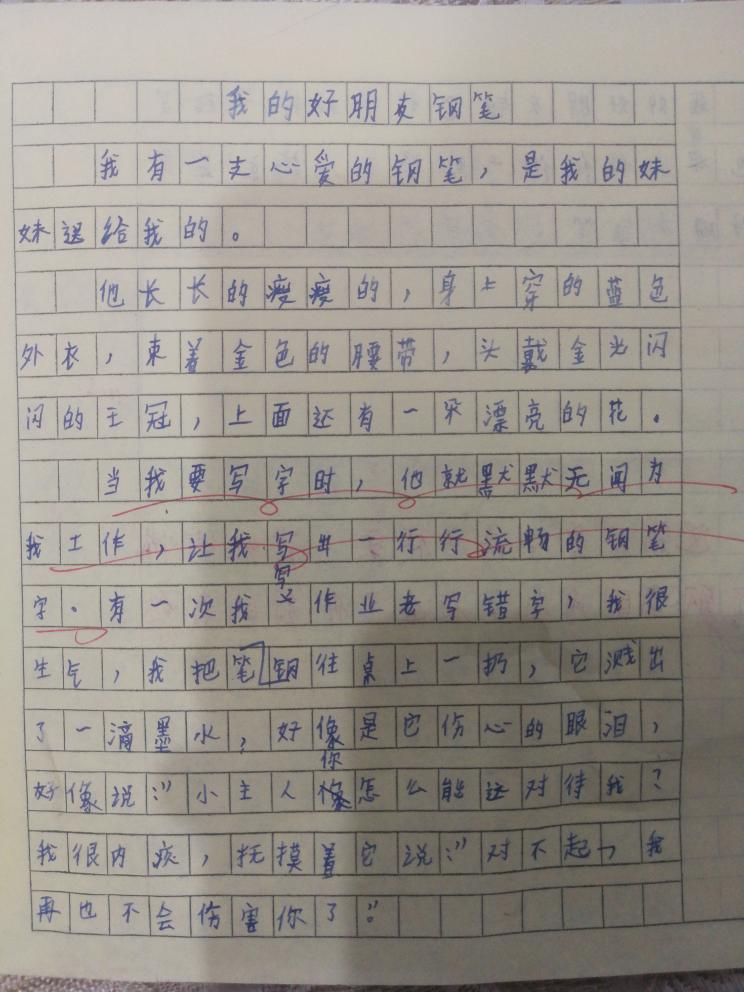 我的好朋友钢笔
我有一支心爱的钢笔，是我的妹
妹送给我的。
他长长的瘦瘦的，身上穿的蓝色
外衣，束着金色的腰带，头戴金光闪
闪的王冠，上面还有一朵漂亮的花。
当我要写字时，他就默默无闻为
我工作，让我写出一行行流畅的钢笔
字。有一次我写作业老写错字，我很
生气，我把笔钢往桌上一扔，它溅出
了一滴墨水，好像是它伤心的眼泪，
好像说：“小主人你怎么能这对待我？
我很内疚，抚摸着它说：“对不起，我
再也不会伤害你了”。